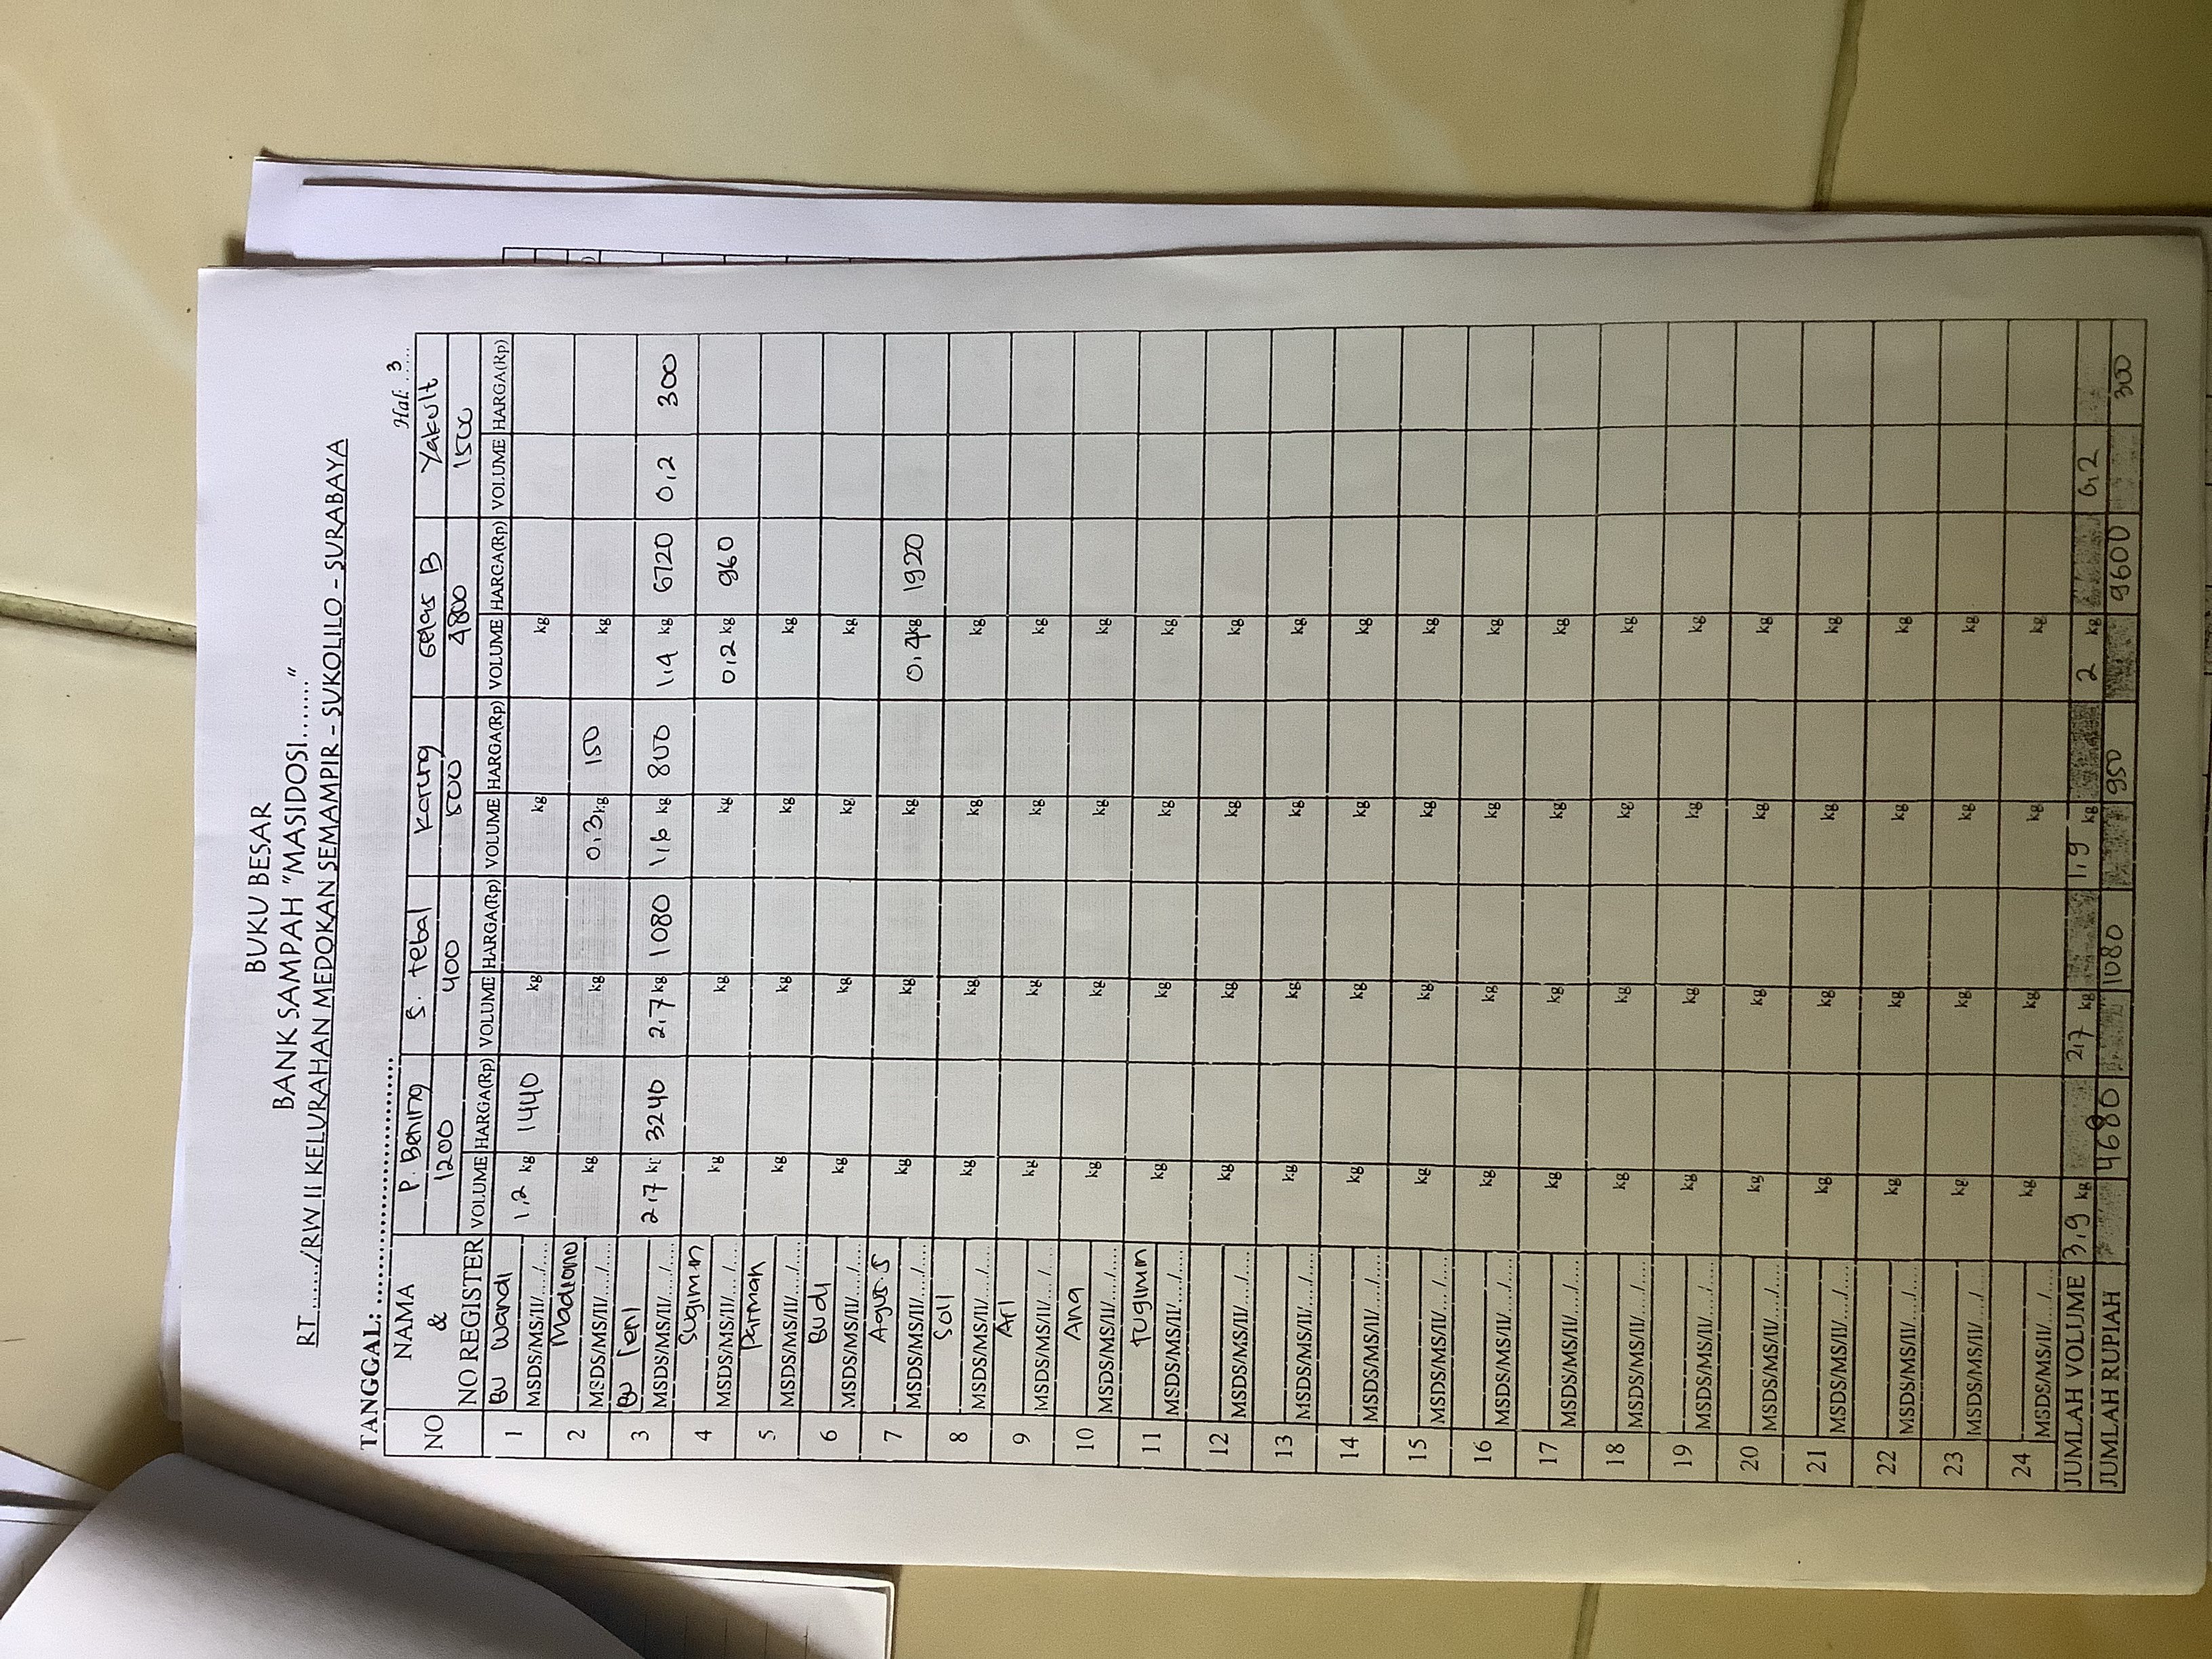 BUKU BESAR
BANK SAMPAH "MASIDOSI......."
RT....../RW II KELURAHAN MEDOKAN SEMAMPIR - SUKOLILO - SURABAYA
TANGGAL: .............................
Hal: ..3...
NO NAMA & NO REGISTER P. Bening S. tebal Karung Gelas B Yakult
1200 400 500 4800 1500
VOLUME HARGA(Rp) VOLUME HARGA(Rp) VOLUME HARGA(Rp) VOLUME HARGA(Rp) VOLUME HARGA(Rp)
1 Bu Wandi
MSDS/MS/II/..../.... 1,2 kg 1440 kg kg kg
2 Madiono
MSDS/MS/II/..../.... kg kg 0,3 kg 150 kg
3 Bu
MSDS/MS/II/..../.... 2,7 kg 3240 2,7 kg 1080 1,6 kg 800 1,4 kg 6720 0,2 300
4 Sugimin
MSDS/MS/II/..../.... kg kg kg 0,2 kg 960
5 Parman
MSDS/MS/II/..../.... kg kg kg kg
6 Budi
MSDS/MS/II/..../.... kg kg kg kg
7 Agus.S
MSDS/MS/II/..../.... kg kg kg 0,4 kg 1920
8 Soli
MSDS/MS/II/..../.... kg kg kg kg
9 Ari
MSDS/MS/II/..../.... kg kg kg kg
10 Ana
MSDS/MS/II/..../.... kg kg kg kg
11 tugimin
MSDS/MS/II/..../.... kg kg kg kg
12 MSDS/MS/II/..../.... kg kg kg kg
13 MSDS/MS/II/..../.... kg kg kg kg
14 MSDS/MS/II/..../.... kg kg kg kg
15 MSDS/MS/II/..../.... kg kg kg kg
16 MSDS/MS/II/..../.... kg kg kg kg
17 MSDS/MS/II/..../.... kg kg kg kg
18 MSDS/MS/II/..../.... kg kg kg kg
19 MSDS/MS/II/..../.... kg kg kg kg
20 MSDS/MS/II/..../.... kg kg kg kg
21 MSDS/MS/II/..../.... kg kg kg kg
22 MSDS/MS/II/..../.... kg kg kg kg
23 MSDS/MS/II/..../.... kg kg kg kg
24 MSDS/MS/II/..../.... kg kg kg kg
JUMLAH VOLUME 3,9 kg 2,7 kg 1,9 kg 2 kg 0,2
JUMLAH RUPIAH 4680 1080 950 9600 300